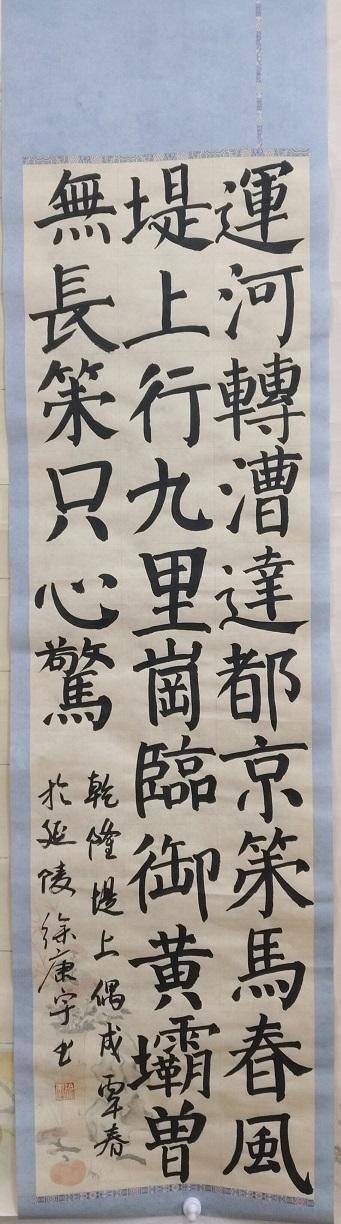 運河轉漕達都京策馬春風
堤上行九里崗臨御黄壩曾
無長策只心驚
乾隆堤上偶成覃春
於延陵徐康宇书